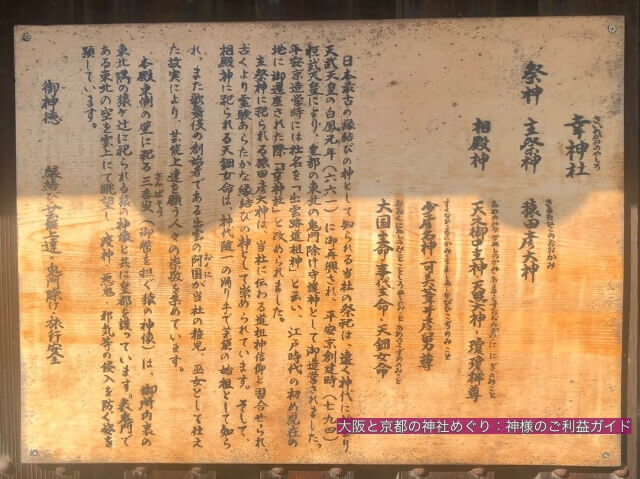 さいのかみのやしろ
幸神社
祭神 主祭神 猿田彦大神
さるたひこのおおかみ
相殿神 天之御中主神・天照大神・瓊瓊杵尊
少彦名神・可美葦牙彦舅尊
大国主命・事代主命・天鈿女命
日本最古の縁結びの神として知られる当社の祭祀は、遠く神代に始まり
天武天皇の白鳳元年(六六一)に御再興され、平安京創建時(七九四)
桓武天皇により、皇都の東北の鬼門除け守護神として御造営されました。
平安京造営時には社名を「出雲路道祖神」と云い、江戸時代の初め現在の
地に御遷座された際「幸神社」と改められました。
主祭神に祀られる猿田彦大神は、当社に伝わる道祖神信仰と習合せられ、
古くより霊験あらたかな縁結びの神として崇められています。そして、
相殿神に祀られる天鈿女命は、神代随一の踊り手で芸能の始祖として知ら
れ、また歌舞伎の創始者である出雲の阿国が当社の稚児、巫女として仕え
おくに
た故実により、芸能上達を願う人々の崇敬を集めています。
本殿東側の壁に祀る三番叟(御幣を担ぐ猿の神像)は、御所内裏の
さんばそう
東北隅の猿ヶ辻に祀られる猿の神像と共に皇都を護っています。表鬼門で
ある東北の空を雲上にて眺望し、疫神・悪鬼・邪気等の侵入を防ぐ姿を
顕しています。
御神徳 縁結び・芸能上達・鬼門除け・旅行安全
大阪と京都の神社めぐり:神様のご利益ガイド